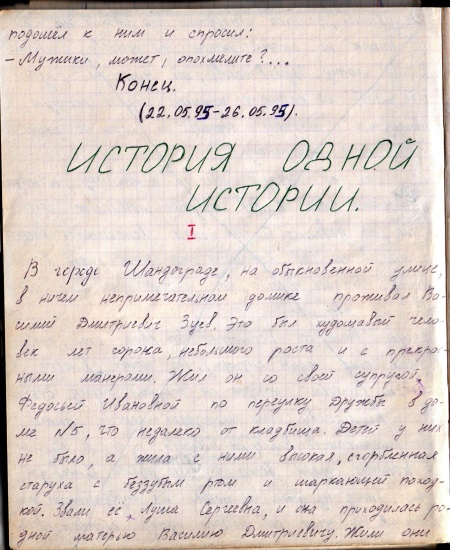 подошёл к ним и спросил:
– Мужики, может, опохмелите?...
Конец.
(22.05.95–26.05.95).
ИСТОРИЯ ОДНОЙ
ИСТОРИИ.
I
В городе Шандограде, на обыкновенной улице,
в ничем непримечательном домике проживал Ва-
силий Дмитриевич Зуев. Это был худощавый чело-
век лет сорока, небольшого роста и с прекрас-
ными манерами. Жил он со своей супругой,
Федосьей Ивановной по переулку Дружбы в до-
ме №5, что недалеко от кладбища. Детей у них
не было, а жила с ними высокая, сгорбленная
старуха с беззубым ртом и шаркающей поход-
кой. Звали её, Луша Сергеевна, и она приходилась ро-
дной матерью Василию Дмитриевичу. Жили они